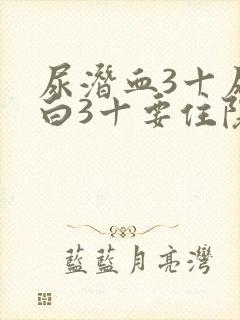 尿潛血3十尿
白3十要住院
藍藍月亮灣